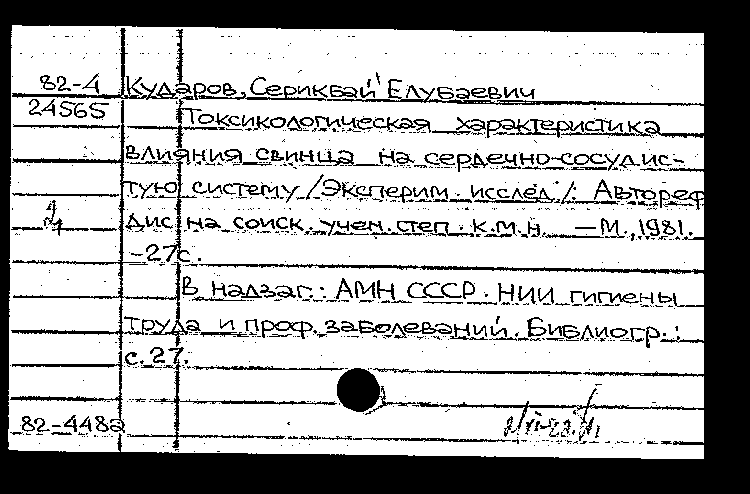 82-4 Кударов, Серикбай Елубаевич
24565 Токсикологическая характеристика
влияния свинца на сердечно-сосудис-
тую систему /Эксперим. исслед./: Автореф
дис на соиск. учен. степ. к.м.н. —М., 1981.
-27с.
В надзаг.: АМН СССР. НИИ гигиены
труда и проф. заболеваний. Библиогр.:
с. 27.
82-4482